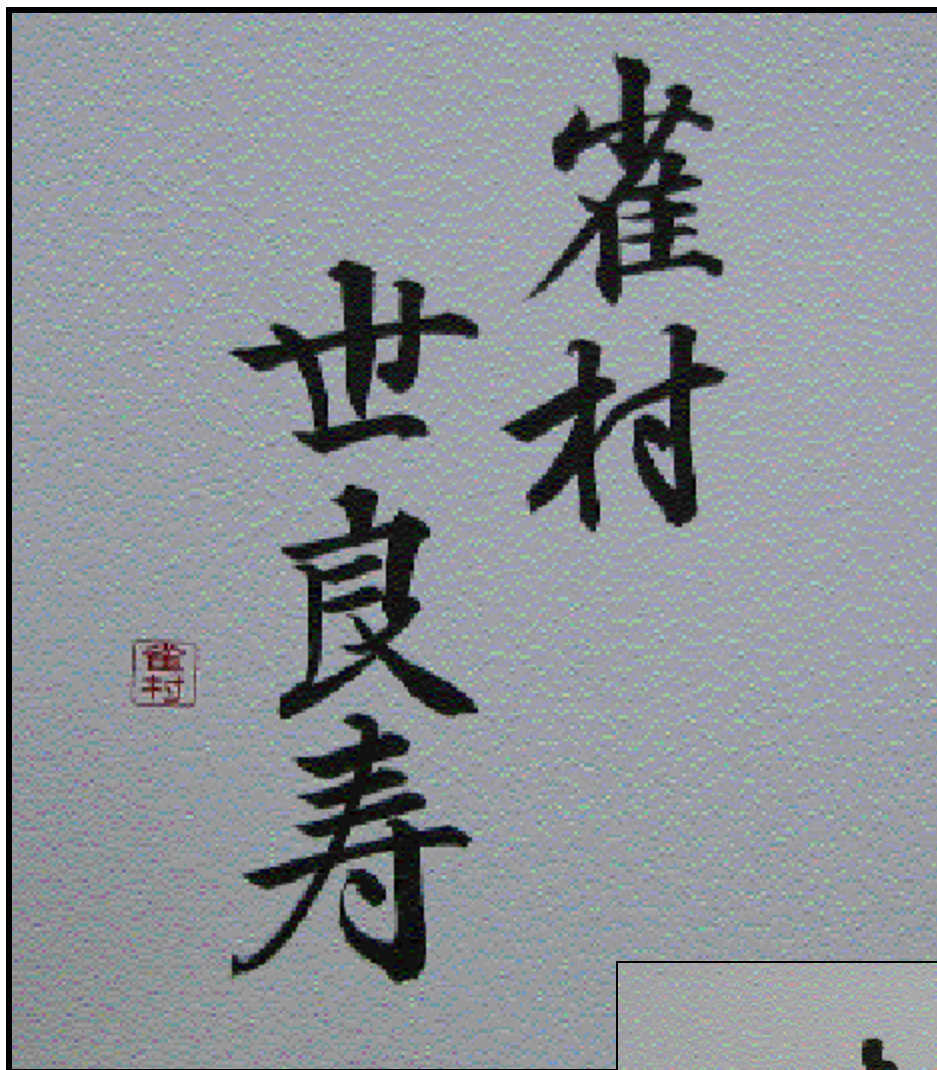 雀村
世良寿
雀村